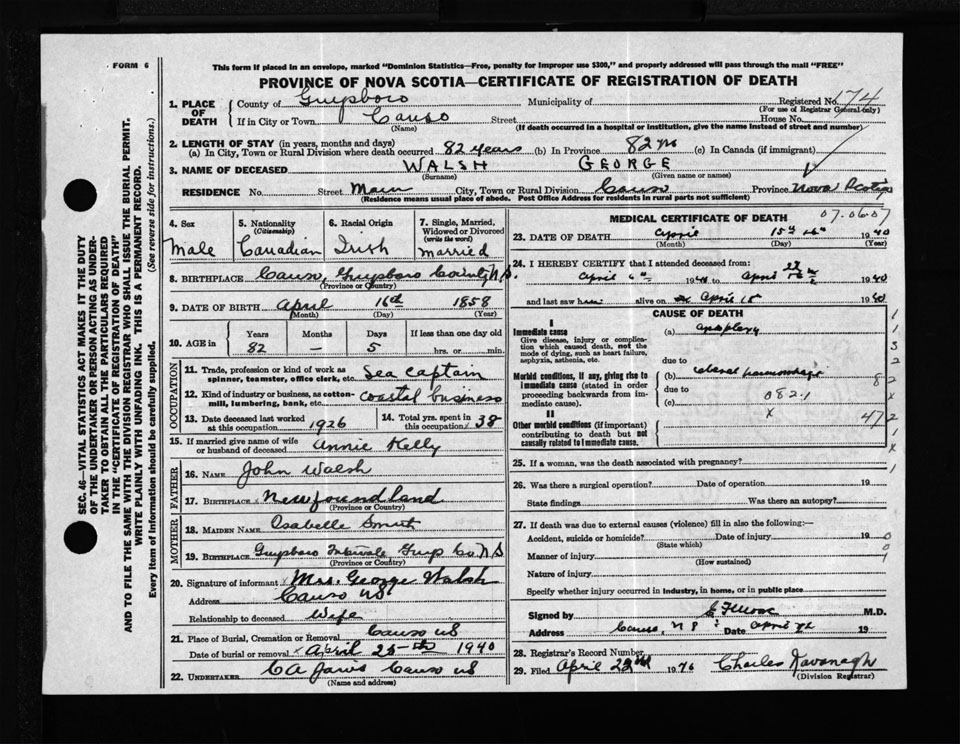 FORM 6
This form if placed in an envelope, marked "Dominion Statistics—Free, penalty for improper use $300," and properly addressed will pass through the mail "FREE"
PROVINCE OF NOVA SCOTIA—CERTIFICATE OF REGISTRATION OF DEATH
1. PLACE OF DEATH County of Guysboro Municipality of Registered No. 174
(For use of Registrar General only)
If in City or Town Canso Street House No.
(Name) (If death occurred in a hospital or institution, give the name instead of street and number)
2. LENGTH OF STAY (in years, months and days)
(a) In City, Town or Rural Division where death occurred 82 years (b) In Province 82 (c) In Canada (if immigrant)
3. NAME OF DECEASED WALSH GEORGE
(Surname) (Given name or names)
RESIDENCE No. Street Main City, Town or Rural Division Canso Province Nova Scotia
(Residence means usual place of abode. Post Office Address for residents in rural parts not sufficient)
4. Sex Male
5. Nationality (Citizenship) Canadian
6. Racial Origin Irish
7. Single, Married, Widowed or Divorced (write the word) Married
8. BIRTHPLACE Canso, Guysboro County N.S.
(Province or Country)
9. DATE OF BIRTH April 16th 1858
(Month) (Day) (Year)
10. AGE in Years Months Days If less than one day old
82 — 5 hrs. or min.
OCCUPATION
11. Trade, profession or kind of work as spinner, teamster, office clerk, etc. Sea Captain
12. Kind of industry or business, as cotton-mill, lumbering, bank, etc. coastal business
13. Date deceased last worked at this occupation 1926
14. Total yrs. spent in this occupation 38
15. If married give name of wife or husband of deceased Annie Kelly
FATHER
16. NAME John Walsh
17. BIRTHPLACE Newfoundland
(Province or Country)
MOTHER
18. MAIDEN NAME Isabelle
19. BIRTHPLACE Guysboro Intervale Guys Co. N S
(Province or Country)
20. Signature of informant Mrs. George Walsh
Address Canso NS
Relationship to deceased Wife
21. Place of Burial, Cremation or Removal Canso NS
Date of burial or removal April 25th 1940
22. UNDERTAKER C A Jarvis Canso NS
(Name and address)
MEDICAL CERTIFICATE OF DEATH 07.06.07
23. DATE OF DEATH April 15th 1940
(Month) (Day) (Year)
24. I HEREBY CERTIFY that I attended deceased from:
April 6th 1940 to April 1940
and last saw him alive on April 15 1940
CAUSE OF DEATH
I
Immediate cause (a) apoplexy
Give disease, injury or complication which caused death, not the mode of dying, such as heart failure, asphyxia, asthenia, etc.
due to
Morbid conditions, if any, giving rise to immediate cause (stated in order proceeding backwards from immediate cause). (b) hemorrhage
due to
(c) 082.1
II
Other morbid conditions (if important) contributing to death but not causally related to immediate cause.
25. If a woman, was the death associated with pregnancy?
26. Was there a surgical operation? Date of operation 19
State findings Was there an autopsy?
27. If death was due to external causes (violence) fill in also the following:—
Accident, suicide or homicide? Date of injury 19
(State which)
Manner of injury
(How sustained)
Nature of injury
Specify whether injury occurred in industry, in home, or in public place
Signed by M.D.
Address Canso, N S Date April 19
28. Registrar's Record Number
29. Filed April 22nd Charles Kavanagh
(Division Registrar)
SEC. 46—VITAL STATISTICS ACT MAKES IT THE DUTY
OF THE UNDERTAKER OR PERSON ACTING AS UNDER-
TAKER TO OBTAIN ALL THE PARTICULARS REQUIRED
IN THE "CERTIFICATE OF REGISTRATION OF DEATH"
AND TO FILE THE SAME WITH THE DIVISION REGISTRAR WHO SHALL ISSUE THE BURIAL PERMIT.
WRITE PLAINLY WITH UNFADING INK. THIS IS A PERMANENT RECORD.
Every item of information should be carefully supplied. (See reverse side for instructions.)